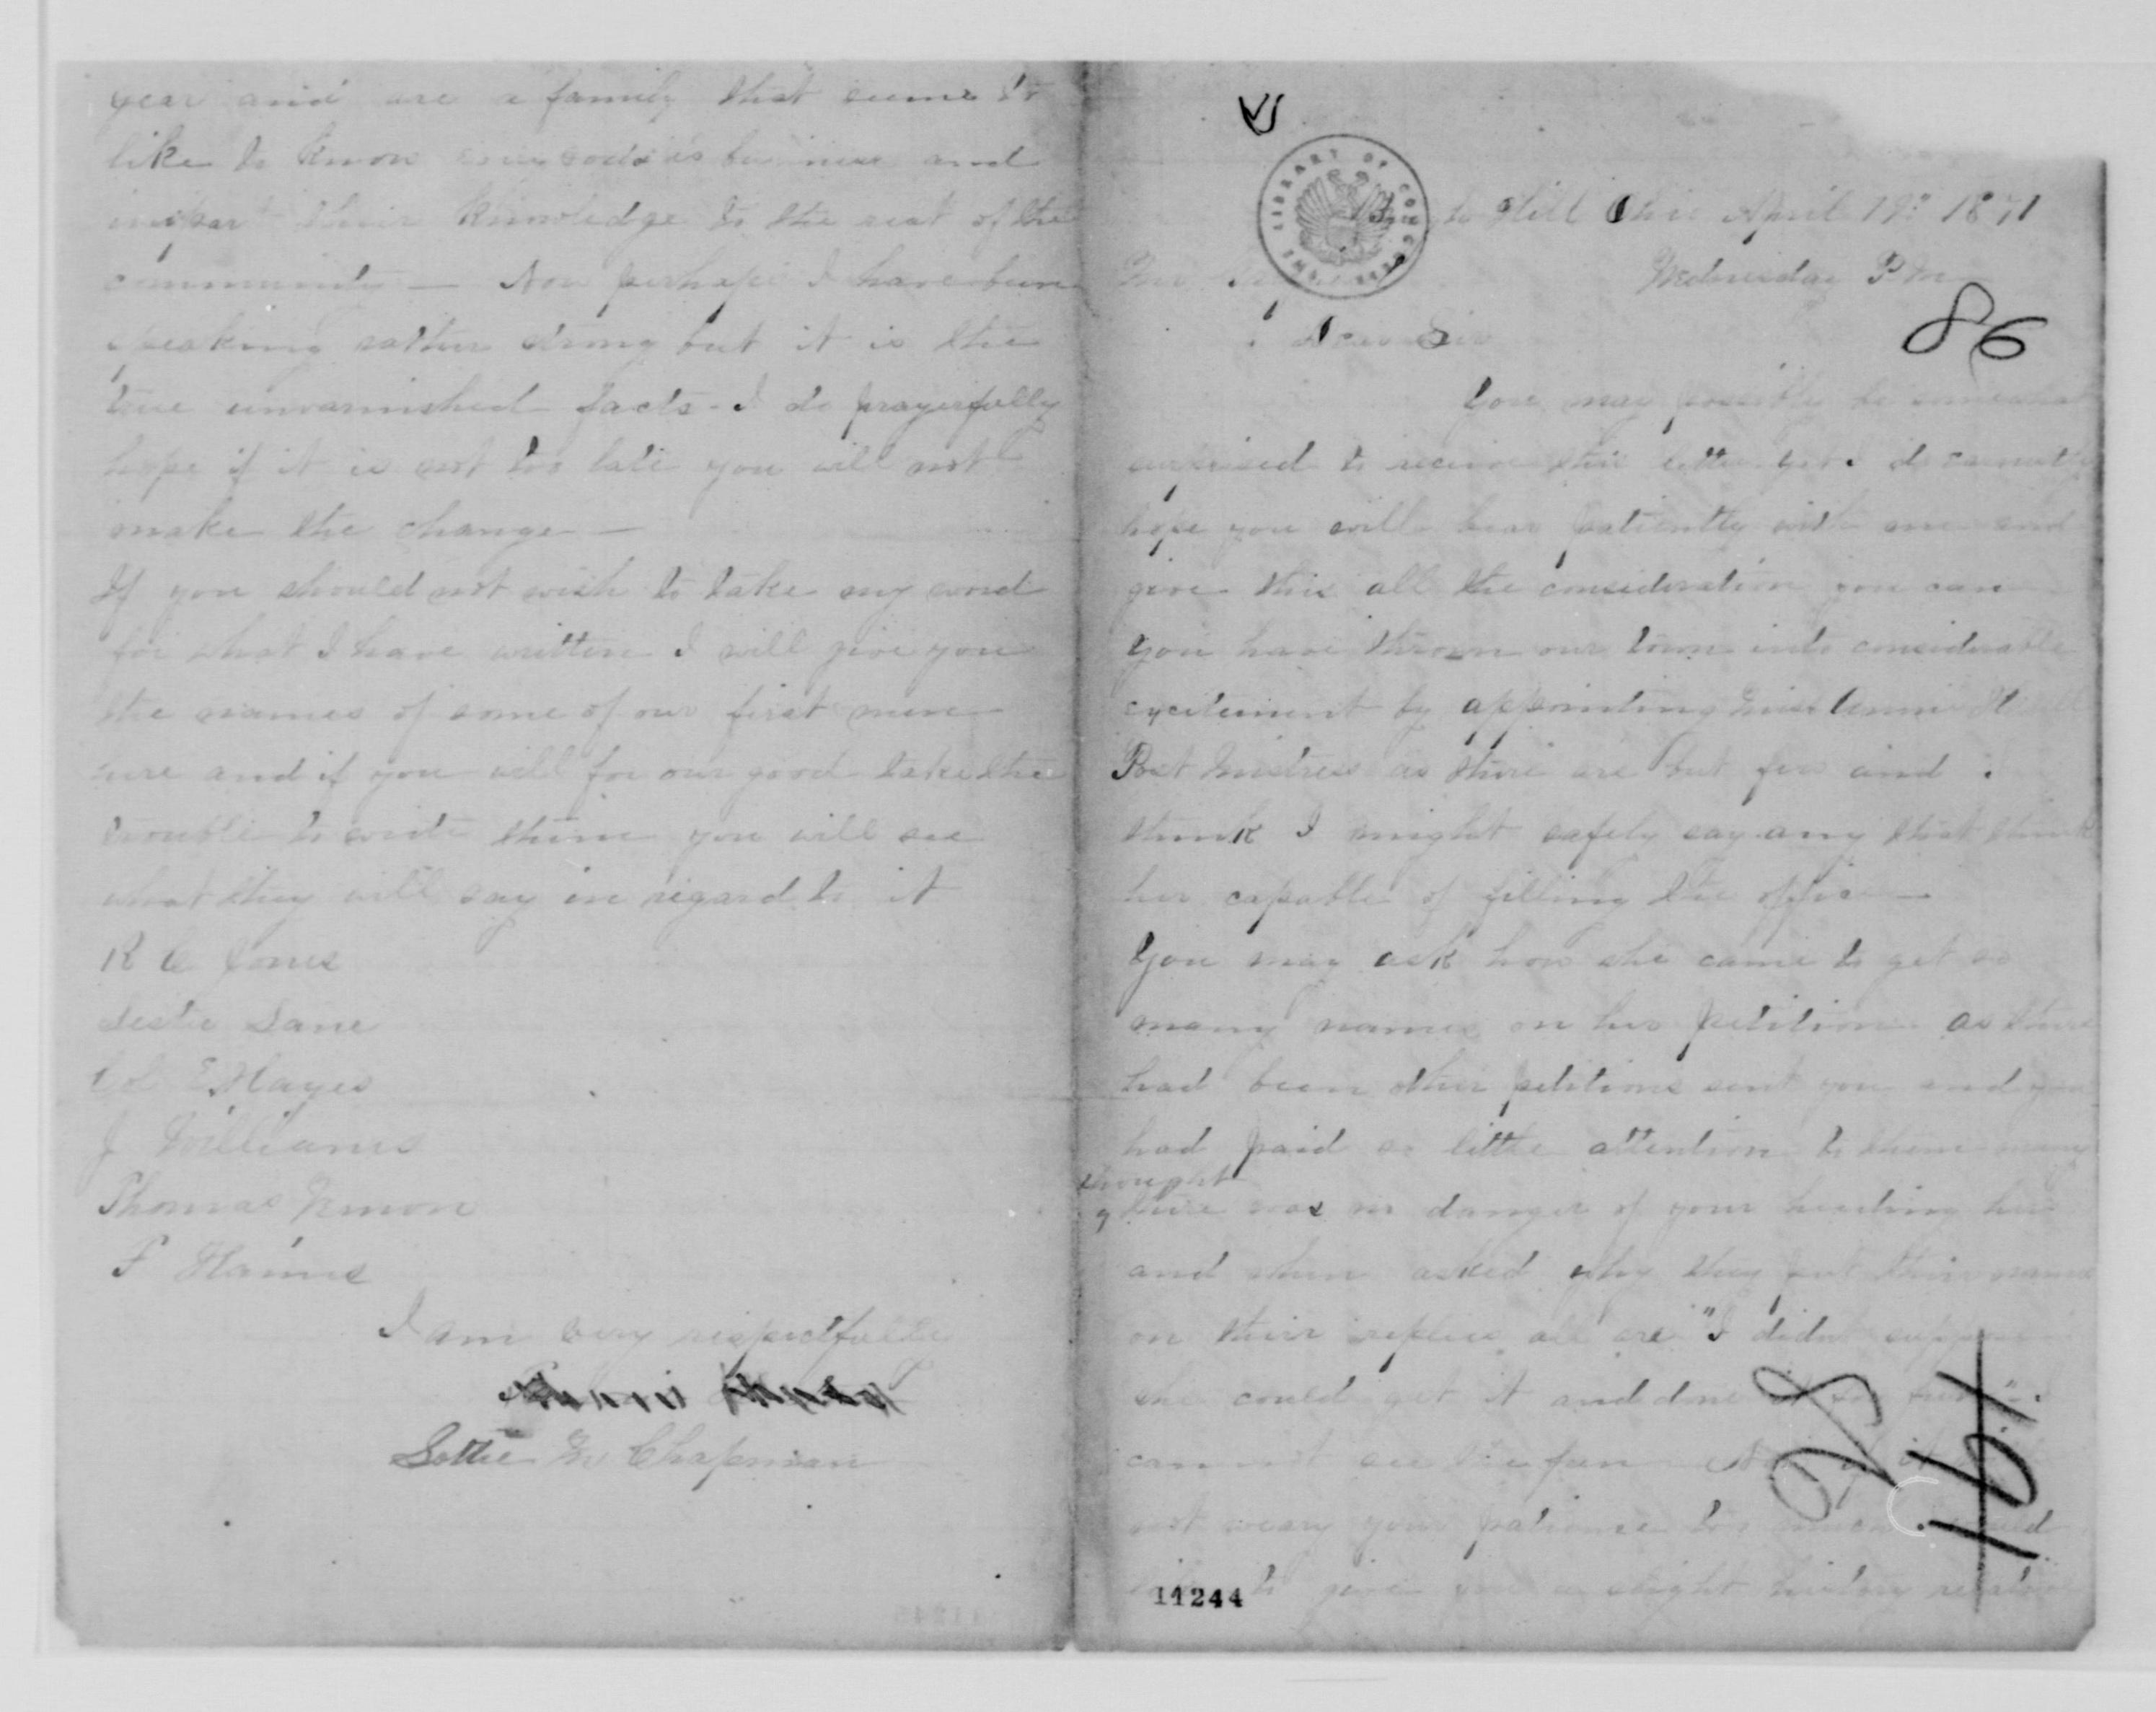 year and are a family that seems to
like to know everybodie's business and
impart their knowledge to the rest of the
community — Now perhaps I have been
speaking rather strong but it is the
true unvarnished facts - I do prayerfully
hope if it is not too late you will not
make the change —
If you should not wish to take my word
for what I have written I will give you
the names of some of our first men
here and if you will for our good take the
trouble to write them you will see
what they will say in regard to it
R C Jones
Lane
Hayes
J Williams
Thomas
F Haines
I am very respectfully
Lottie M Chapman
LIBRARY OF CONGRESS
Hill Ohio April 19th 1871
Wednesday P M
Mr
Dear Sir
86
You may possibly be somewhat
surprised to receive this letter yet I do earnestly
hope you will bear patiently with me and
give this all the consideration you can
You have thrown our town into considerable
excitement by appointing Miss Annie
Post Mistress as there are but few and I
think I might safely say any that think
her capable of filling the office —
You may ask how she came to get so
many names on her petition as there
had been other petitions sent you and you
had paid so little attention to them many
thought
there was no danger of your heeding hers
and when asked why they put their names
on their replies all are "I didnt suppose
she could get it and done it for fun"
cannot see the fun
not weary your patience too much would
like to give you a slight history
11244